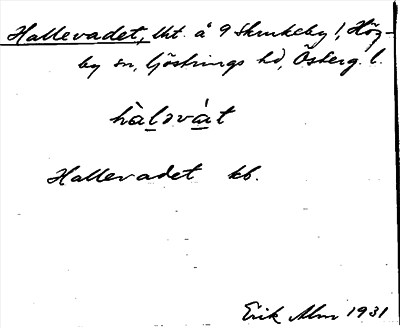 Hallevadet, lht. å 9 Skrukeby 1, Hög-
by sn, Göstrings hd, Österg. l.
hàləvát
Hallevadet kb.
Erik Alm 1931